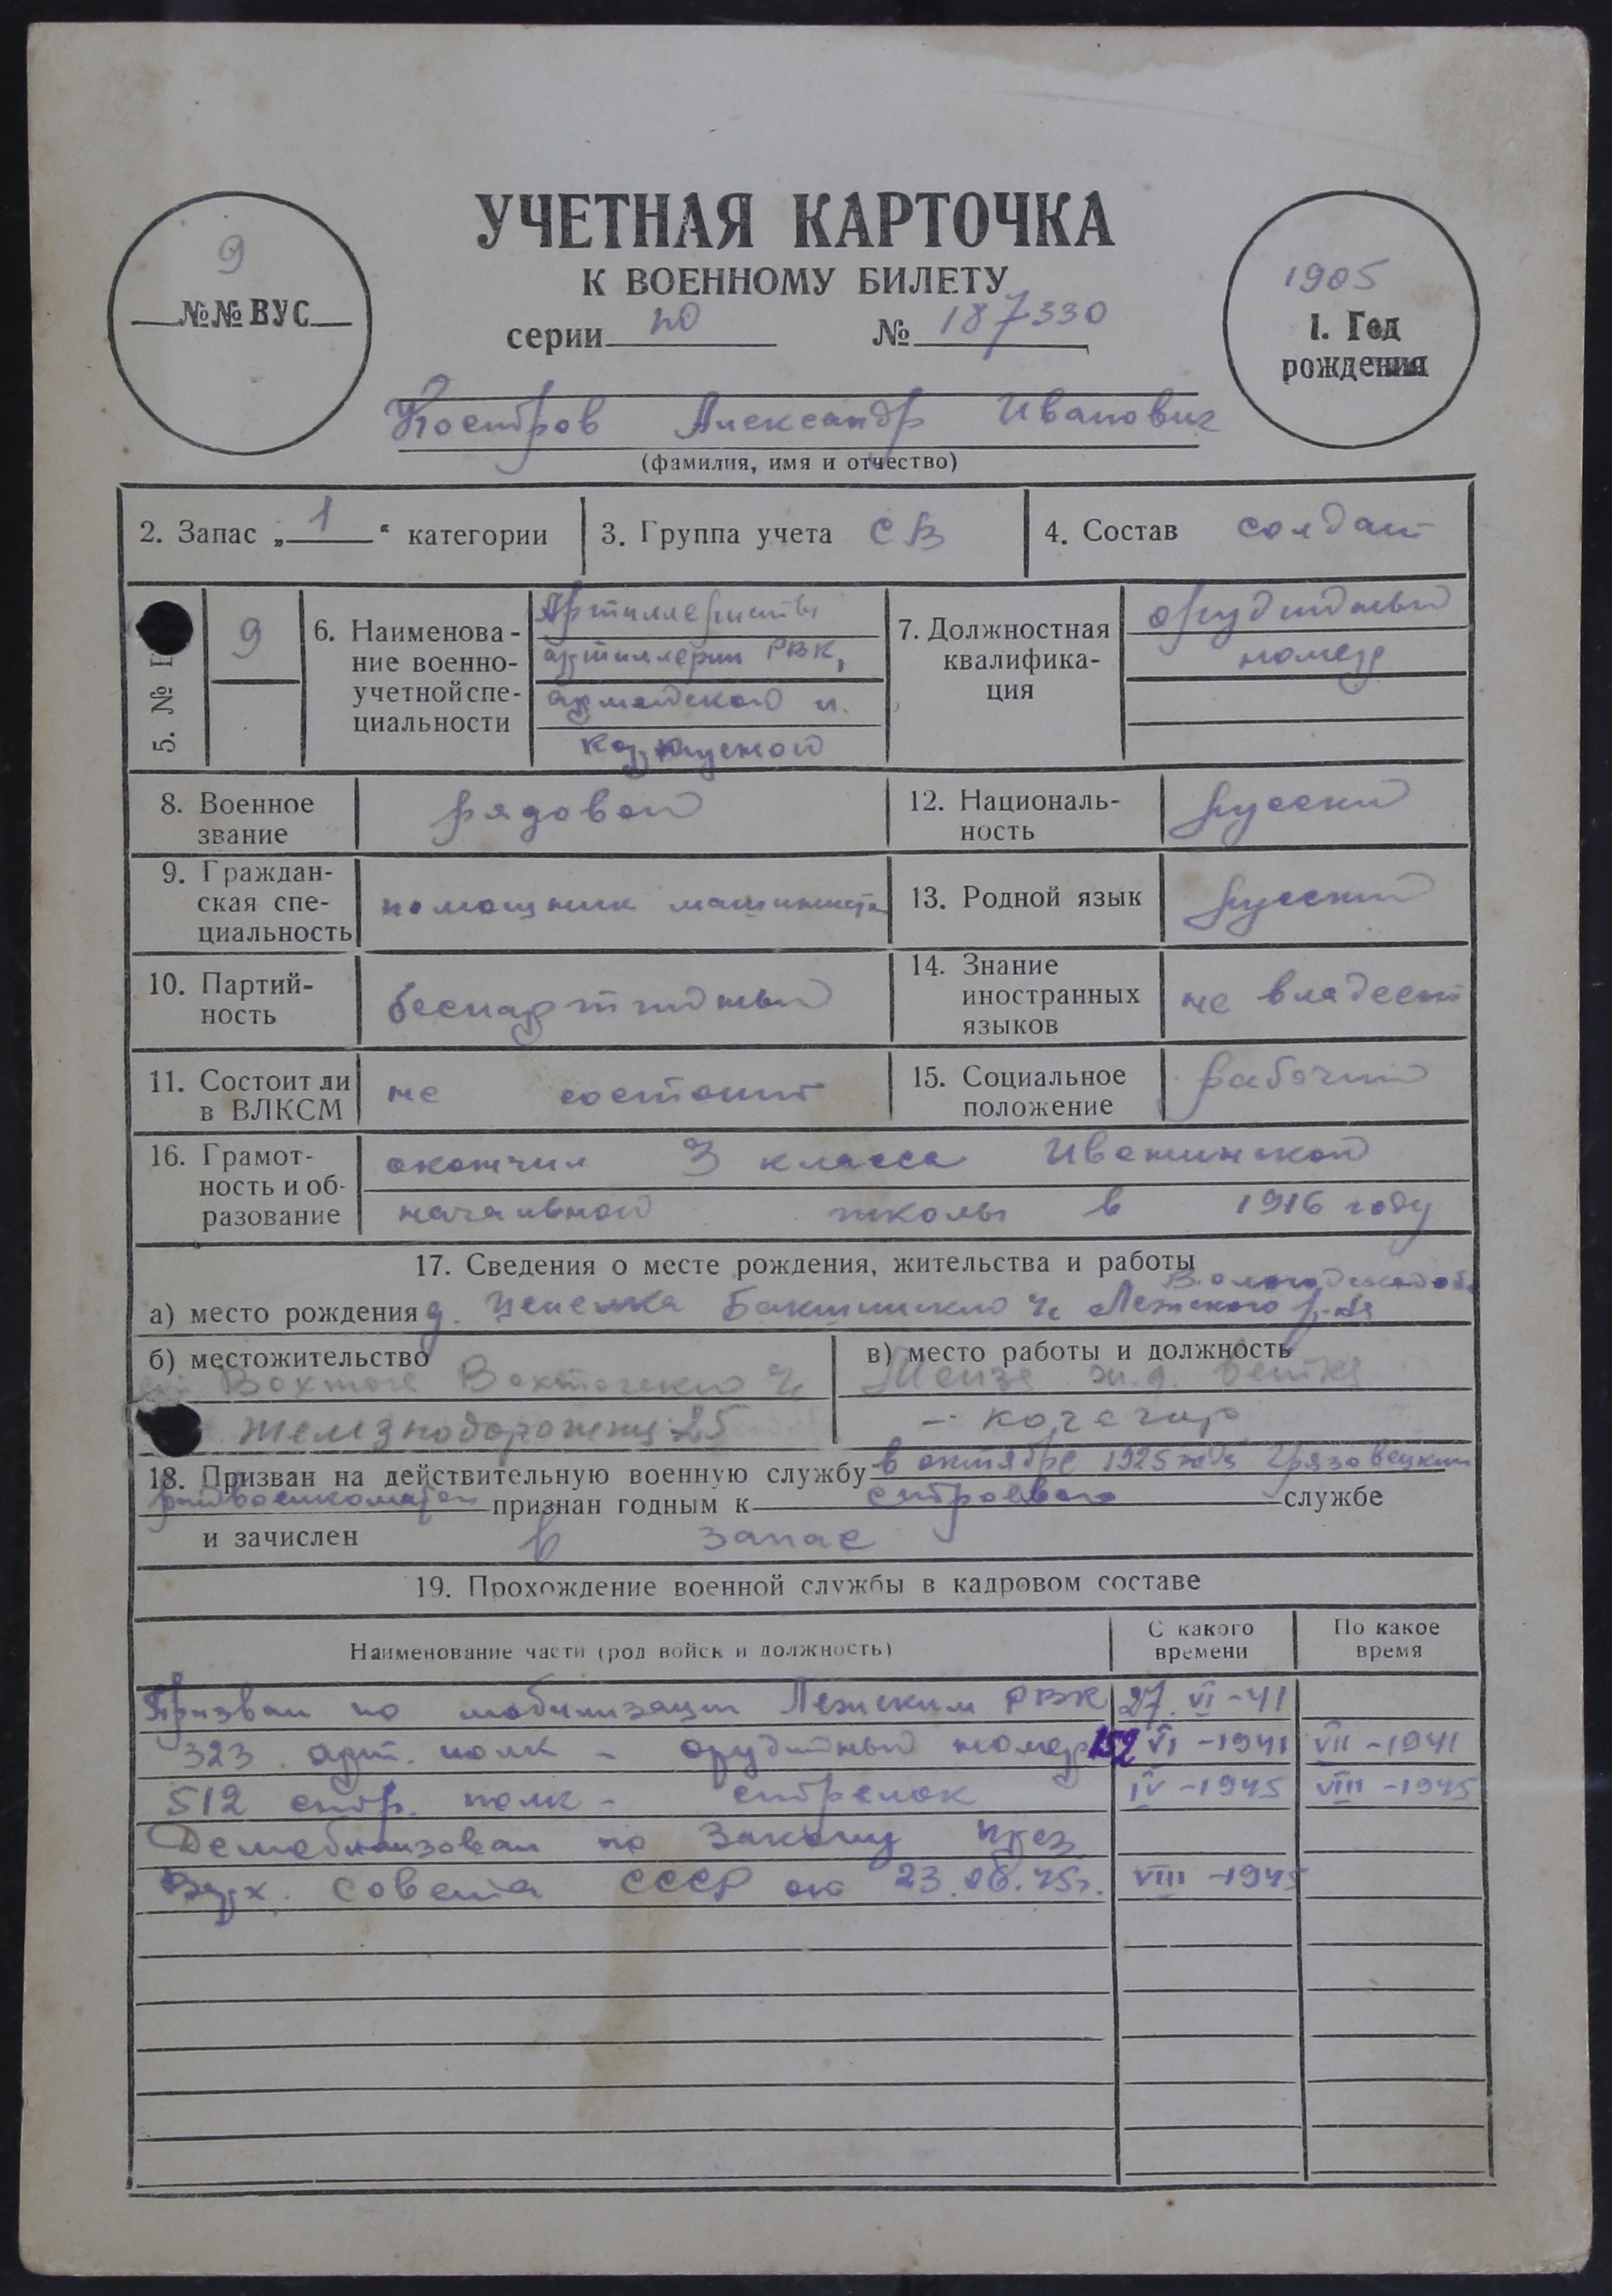 УЧЕТНАЯ КАРТОЧКА
К ВОЕННОМУ БИЛЕТУ
серии НО № 187330
9
№№ ВУС
1905
1. Год
рождения
Костров Александр Иванович
(фамилия, имя и отчество)
2. Запас „1“ категории
3. Группа учета СВ
4. Состав солдат
5. №
9
6. Наименова-
ние военно-
учетной спе-
циальности
Артиллеристы
артиллерии РВК,
армейской и
корпусной
7. Должностная
квалифика-
ция
орудийный
номер
8. Военное
звание
рядовой
12. Националь-
ность
русский
9. Граждан-
ская спе-
циальность
помощник машиниста
13. Родной язык
русский
10. Партий-
ность
беспартийный
14. Знание
иностранных
языков
не владеет
11. Состоит ли
в ВЛКСМ
не состоит
15. Социальное
положение
рабочий
16. Грамот-
ность и об-
разование
окончил 3 класса
начальной школы в 1916 году
17. Сведения о месте рождения, жительства и работы
Вологодской обл
а) место рождения д. Лежского р-на
б) местожительство
Вохтога
Железнодорожная 25
в) место работы и должность
ж.д. ветка
- кочегар
18. Призван на действительную военную службу в октябре 1925 Грязовецким
райвоенкоматом признан годным к строевой службе
и зачислен в запас
19. Прохождение военной службы в кадровом составе
Наименование части (род войск и должность)
С какого
времени
По какое
время
Призван по мобилизации Лежским РВК 27.VI-41
323 арт. полк - орудийный номер 152 VI-1941 VII-1941
512 стр. полк - стрелок IV-1945 VIII-1945
Демобилизован по Закону През.
Верх. Совета СССР от 23.06.45г. VIII-1945